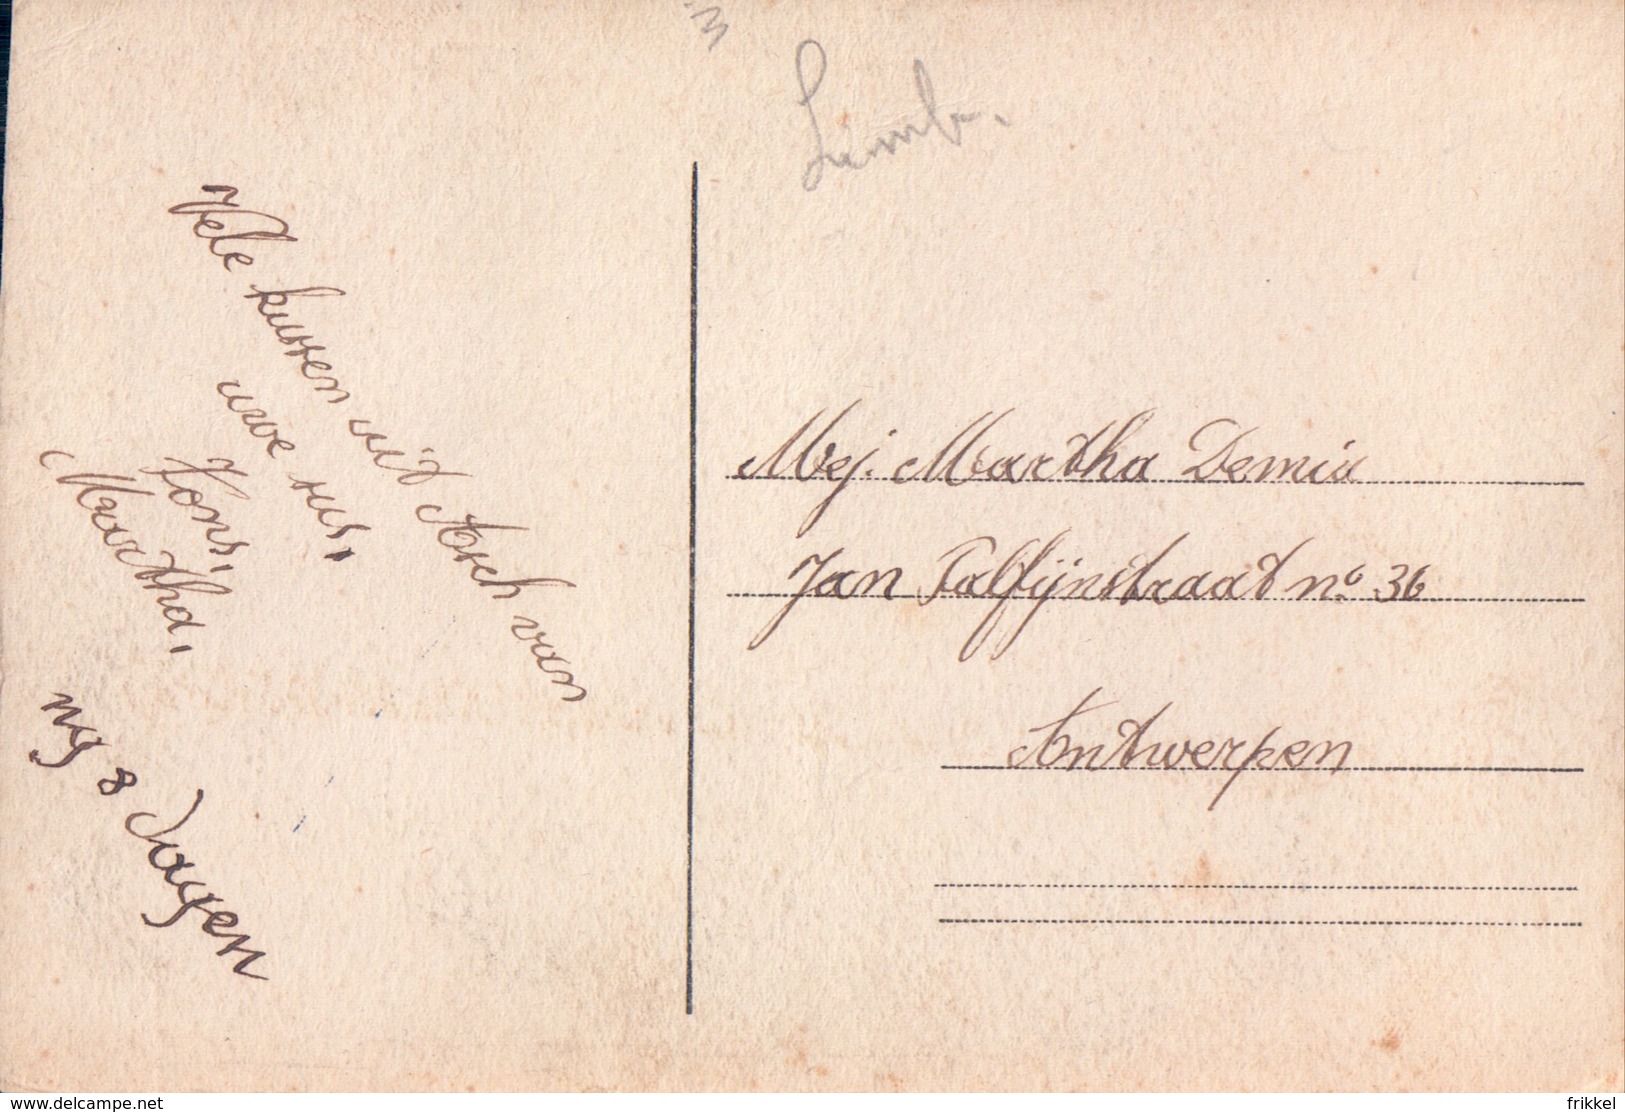 Limb.
Vele kussen uit Asch van
uwe zus,
Martha,
nog 8 dagen
Mej. Martha
Jan Palfijnstraat no 36
Antwerpen
www.delcampe.net
frikkel